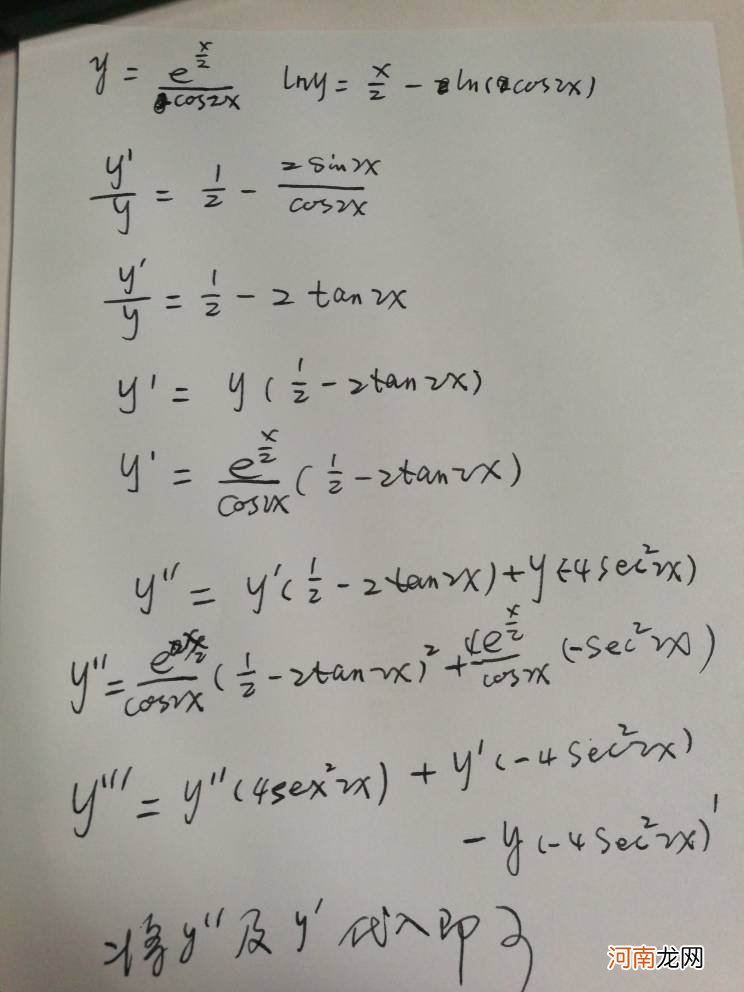 y = e^{x/2} / cos2x    lny = x/2 - ln(cos2x)
y'/y = 1/2 - 2sin2x/cos2x
y'/y = 1/2 - 2 tan2x
y' = y(1/2 - 2tan2x)
y' = e^{x/2}/cos2x (1/2 - 2tan2x)
y'' = y'(1/2 - 2tan2x) + y(-4sec²2x)
y'' = e^{x/2}/cos2x (1/2 - 2tan2x)² + 4e^{x/2}/cos2x (-sec²2x)
y''' = y''(4sex²2x) + y'(-4sec²2x)
- y(-4sec²2x)'
将y''及y'代入即可
河南龙网